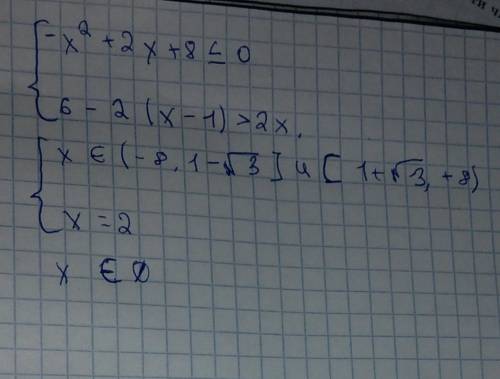 { -x² + 2x + 8 ≤ 0
6 - 2 (x - 1) > 2x,
{ x ∈ (-8, 1 - √3] и [1 + √3, +8)
x = 2
x ∈ Ø